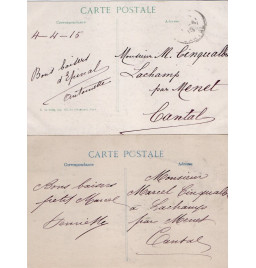 CARTE POSTALE
Correspondance
4-4-15
Bons baisers
d'Epinal
Antoinette
Monsieur M. Cinqualbre
Lachamp
par Menet
Cantal
CARTE POSTALE
Correspondance
Adresse
Bons baisers
petit Marcel
Henriette
Monsieur
Marcel Cinqualbre
à Lachamps
par Menet
Cantal